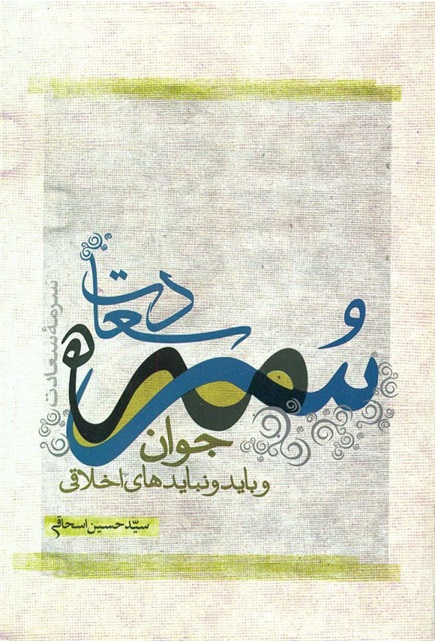 سُرمه
سعادت
جوان
و باید و نبایدهای اخلاقی
سیّد حسین اسحاقی
سرمهٔ سعادت